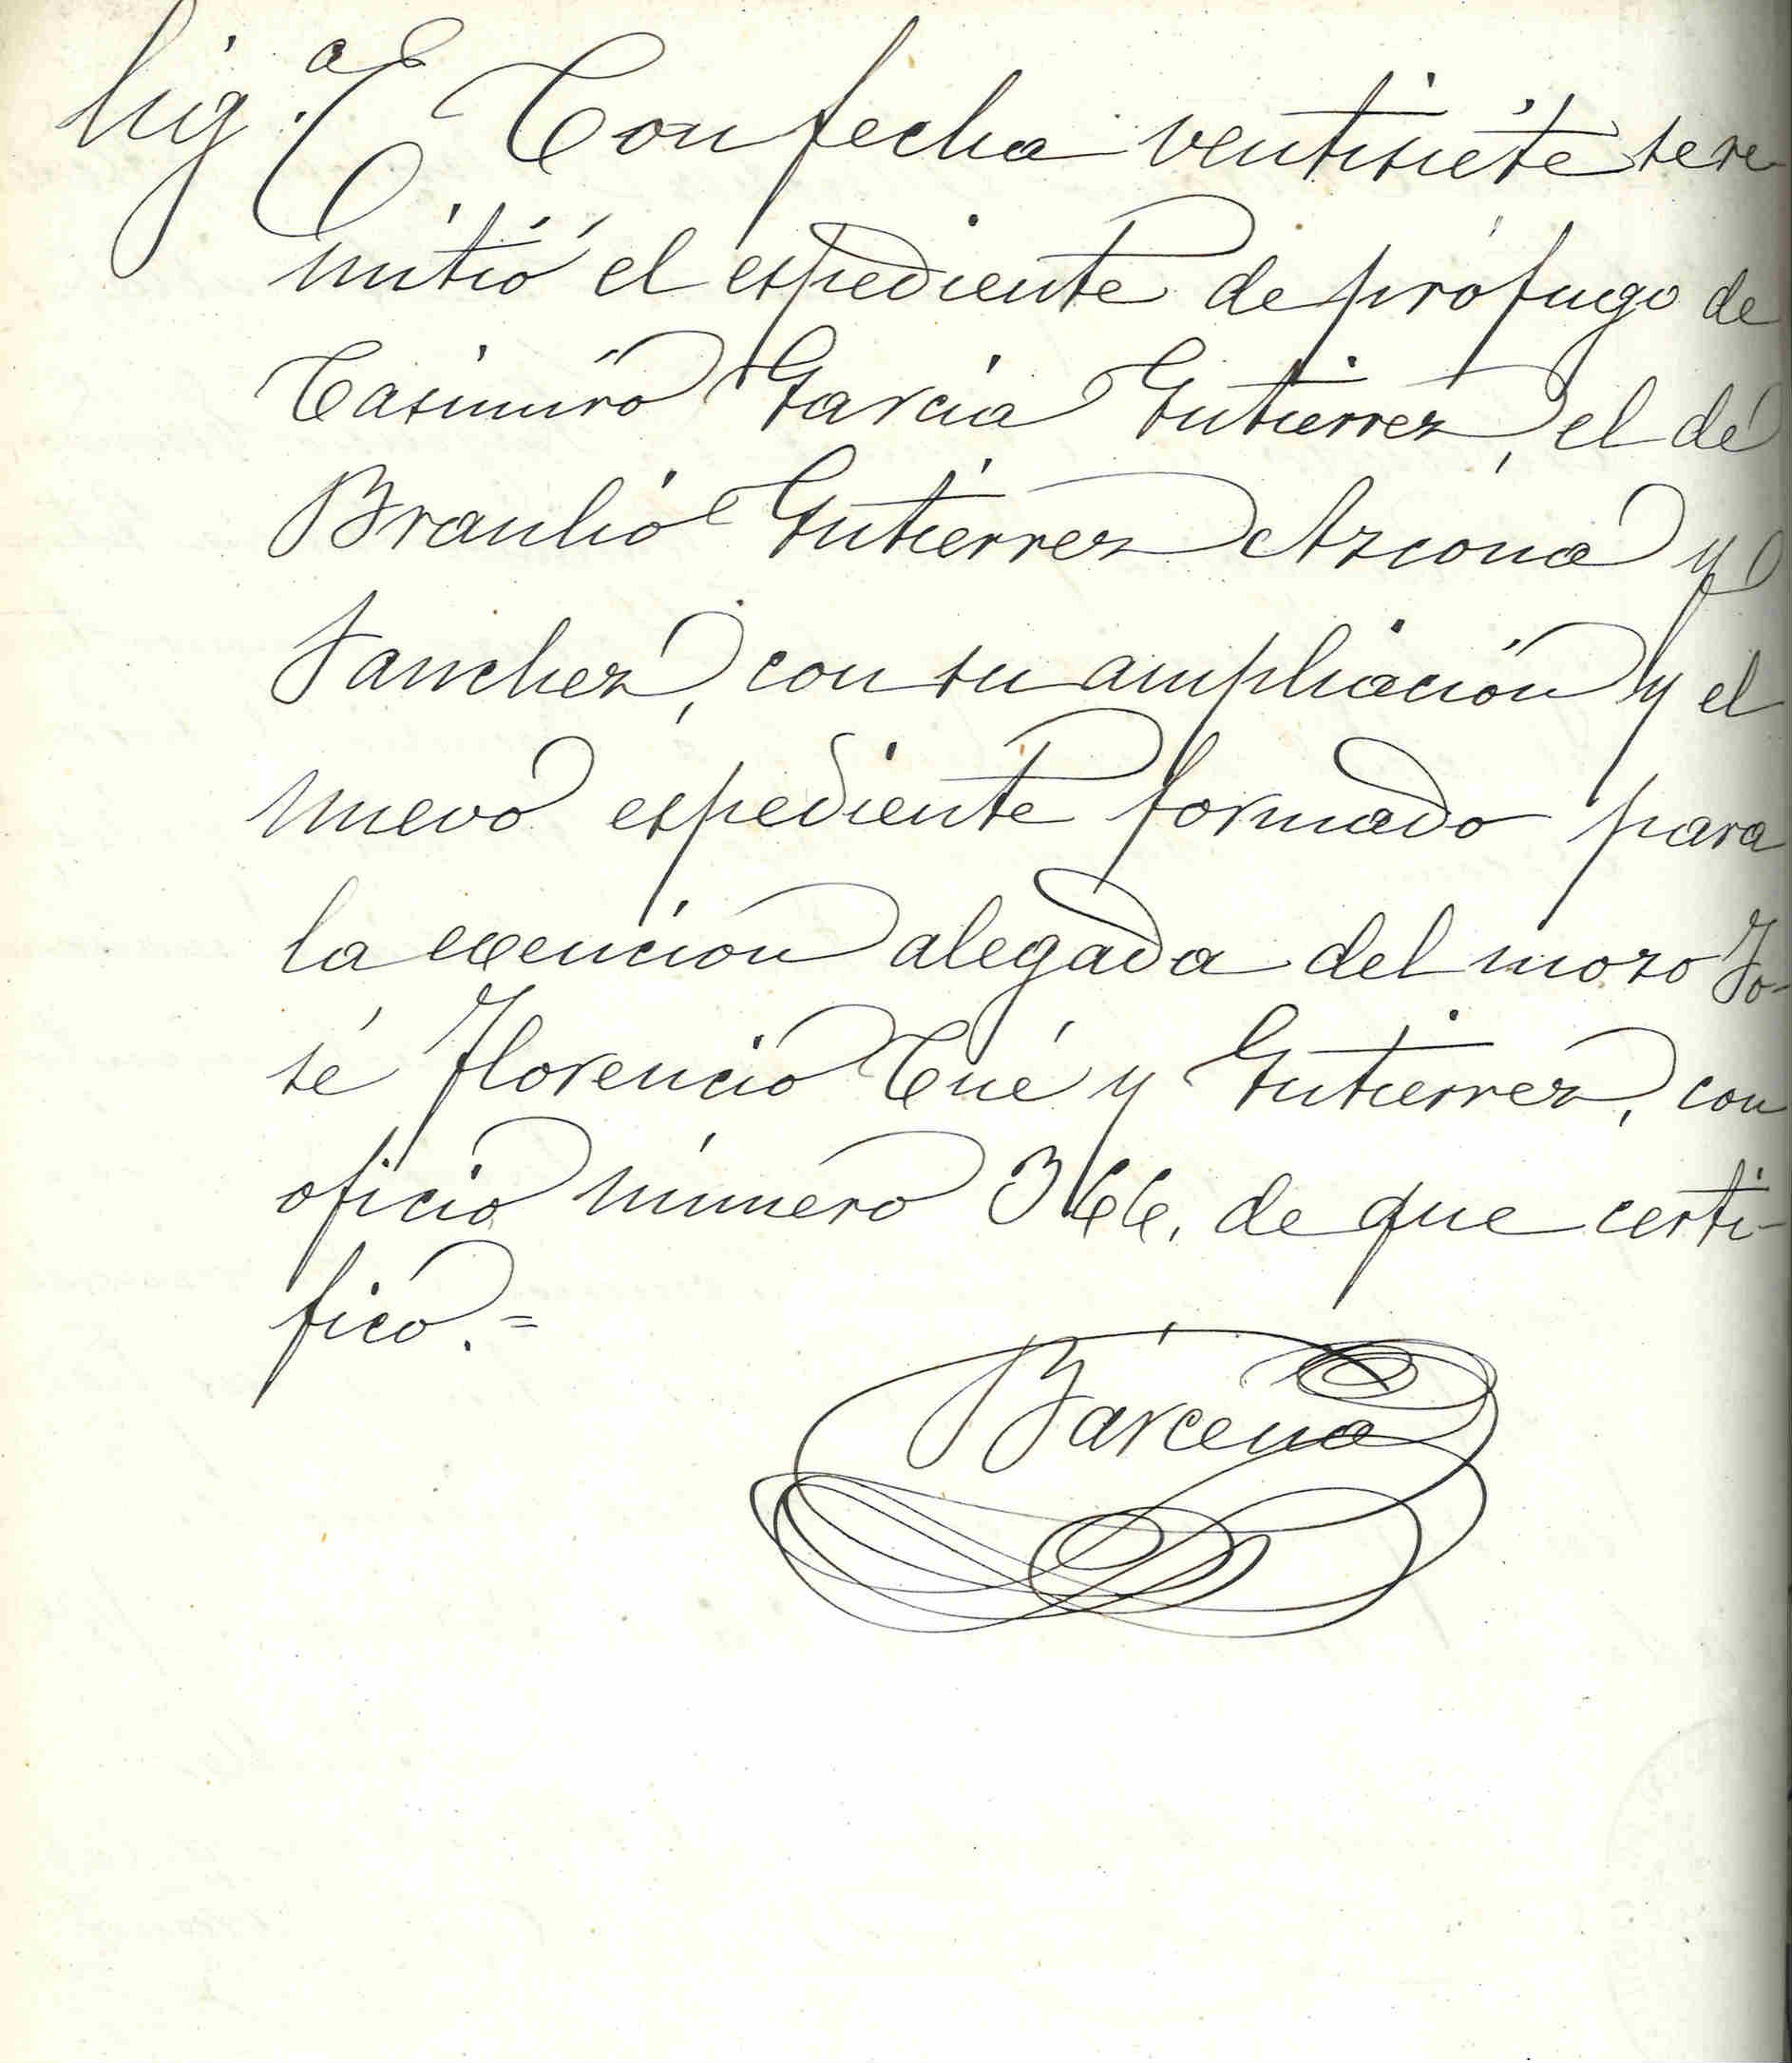 Dilig.ª Con fecha ventisiete se re-
mitió el espediente de prófugo de
Casimiro García Gutierrez, el de
Braulio Gutierrez Azcona y
Sanchez, con su ampliación y el
nuevo espediente formado para
la exención alegada del mozo Jo-
sé Florencio Cué y Gutierrez, con
oficio número 366, de que certi-
fico.=
Bárcena